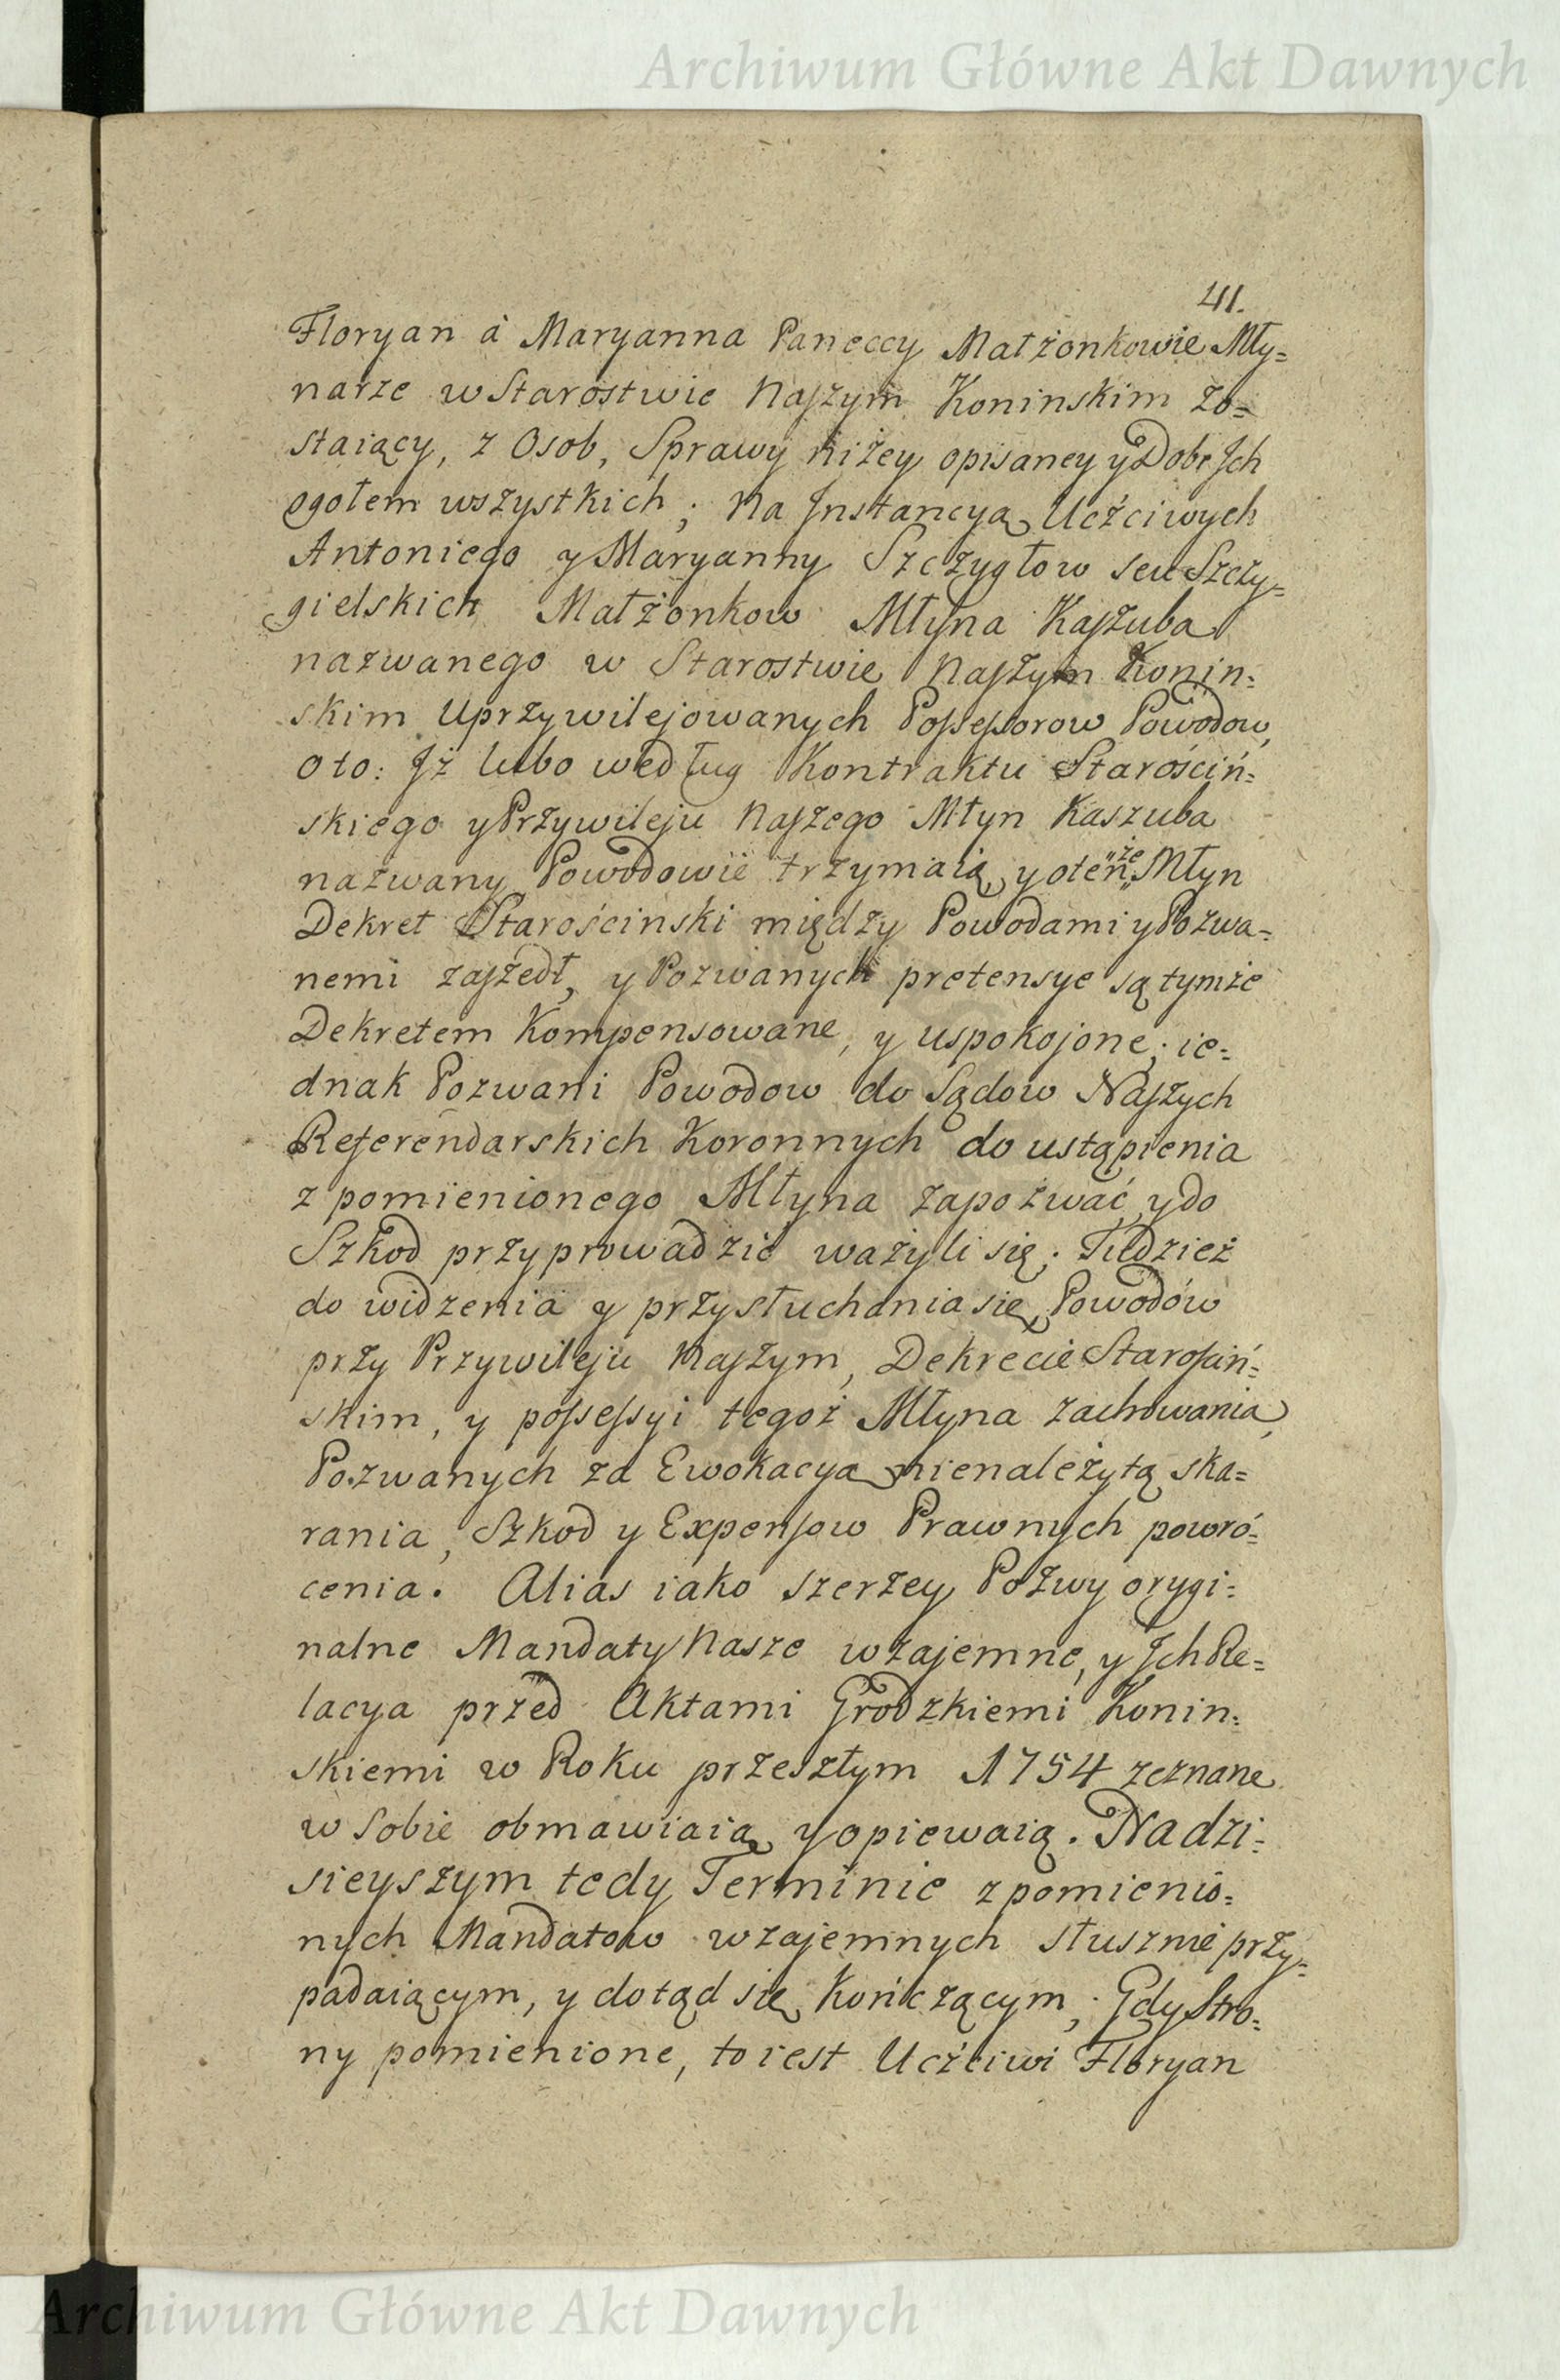 Archiwum Główne Akt Dawnych
41.
Floryan à Maryanna Paneccy Małżonkowie Mły=
narze w Starostwie Naszym Koninskim zo=
staiący, z Osob, Sprawy niżey opisaney y Dobr Ich
ogołem wszystkich; Na Instancyą Uczciwych
Antoniego y Maryanny Szczygłow seu Szczy=
gielskich Małżonkow Młyna Kaszuba
nazwanego w Starostwie Naszym Konin=
skim Uprzywilejowanych Possessorow Powodow,
oto: Iż lubo według Kontraktu Starościń=
skiego y Przywileju Naszego Młyn Kaszuba
nazwany Powodowie trzymaią, y o ten "że" Młyn
Dekret Starościnski między Powodami y Pozwa=
nemi zaszedł, y Pozwanych pretensye są tymże
Dekretem Kompensowane, y uspokojone; ie=
dnak Pozwani Powodow do Sądow Naszych
Referendarskich Koronnych do ustąpienia
z pomienionego Młyna zapozwać y do
Szkod przyprowadzić ważyli się. Tudzież
do widzenia y przysłuchania się Powodów
przy Przywileju Naszym, Dekrecie Starościń=
skim, y possessyi tegoż Młyna zachowania,
Pozwanych za Ewokacyą nienależytą ska=
rania, Szkod y Expensow Prawnych powró=
cenia. Alias iako szerzey Pozwy orygi=
nalne Mandaty Nasze wzajemne, y Ich Re=
lacya przed Aktami Grodzkiemi Konin=
skiemi w Roku przeszłym 1754 zeznane
w sobie obmawiaią y opiewaią. Na dzi=
sieyszym tedy Terminie z pomienio=
nych Mandatow wzajemnych słusznie przy=
padaiącym, y dotąd się kończącym; Gdy Stro=
ny pomienione, to iest Uczciwi Floryan
Archiwum Główne Akt Dawnych